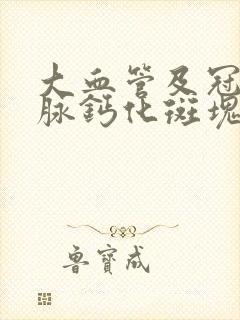 大血管及冠
脉钙化斑塊
鲁寶成